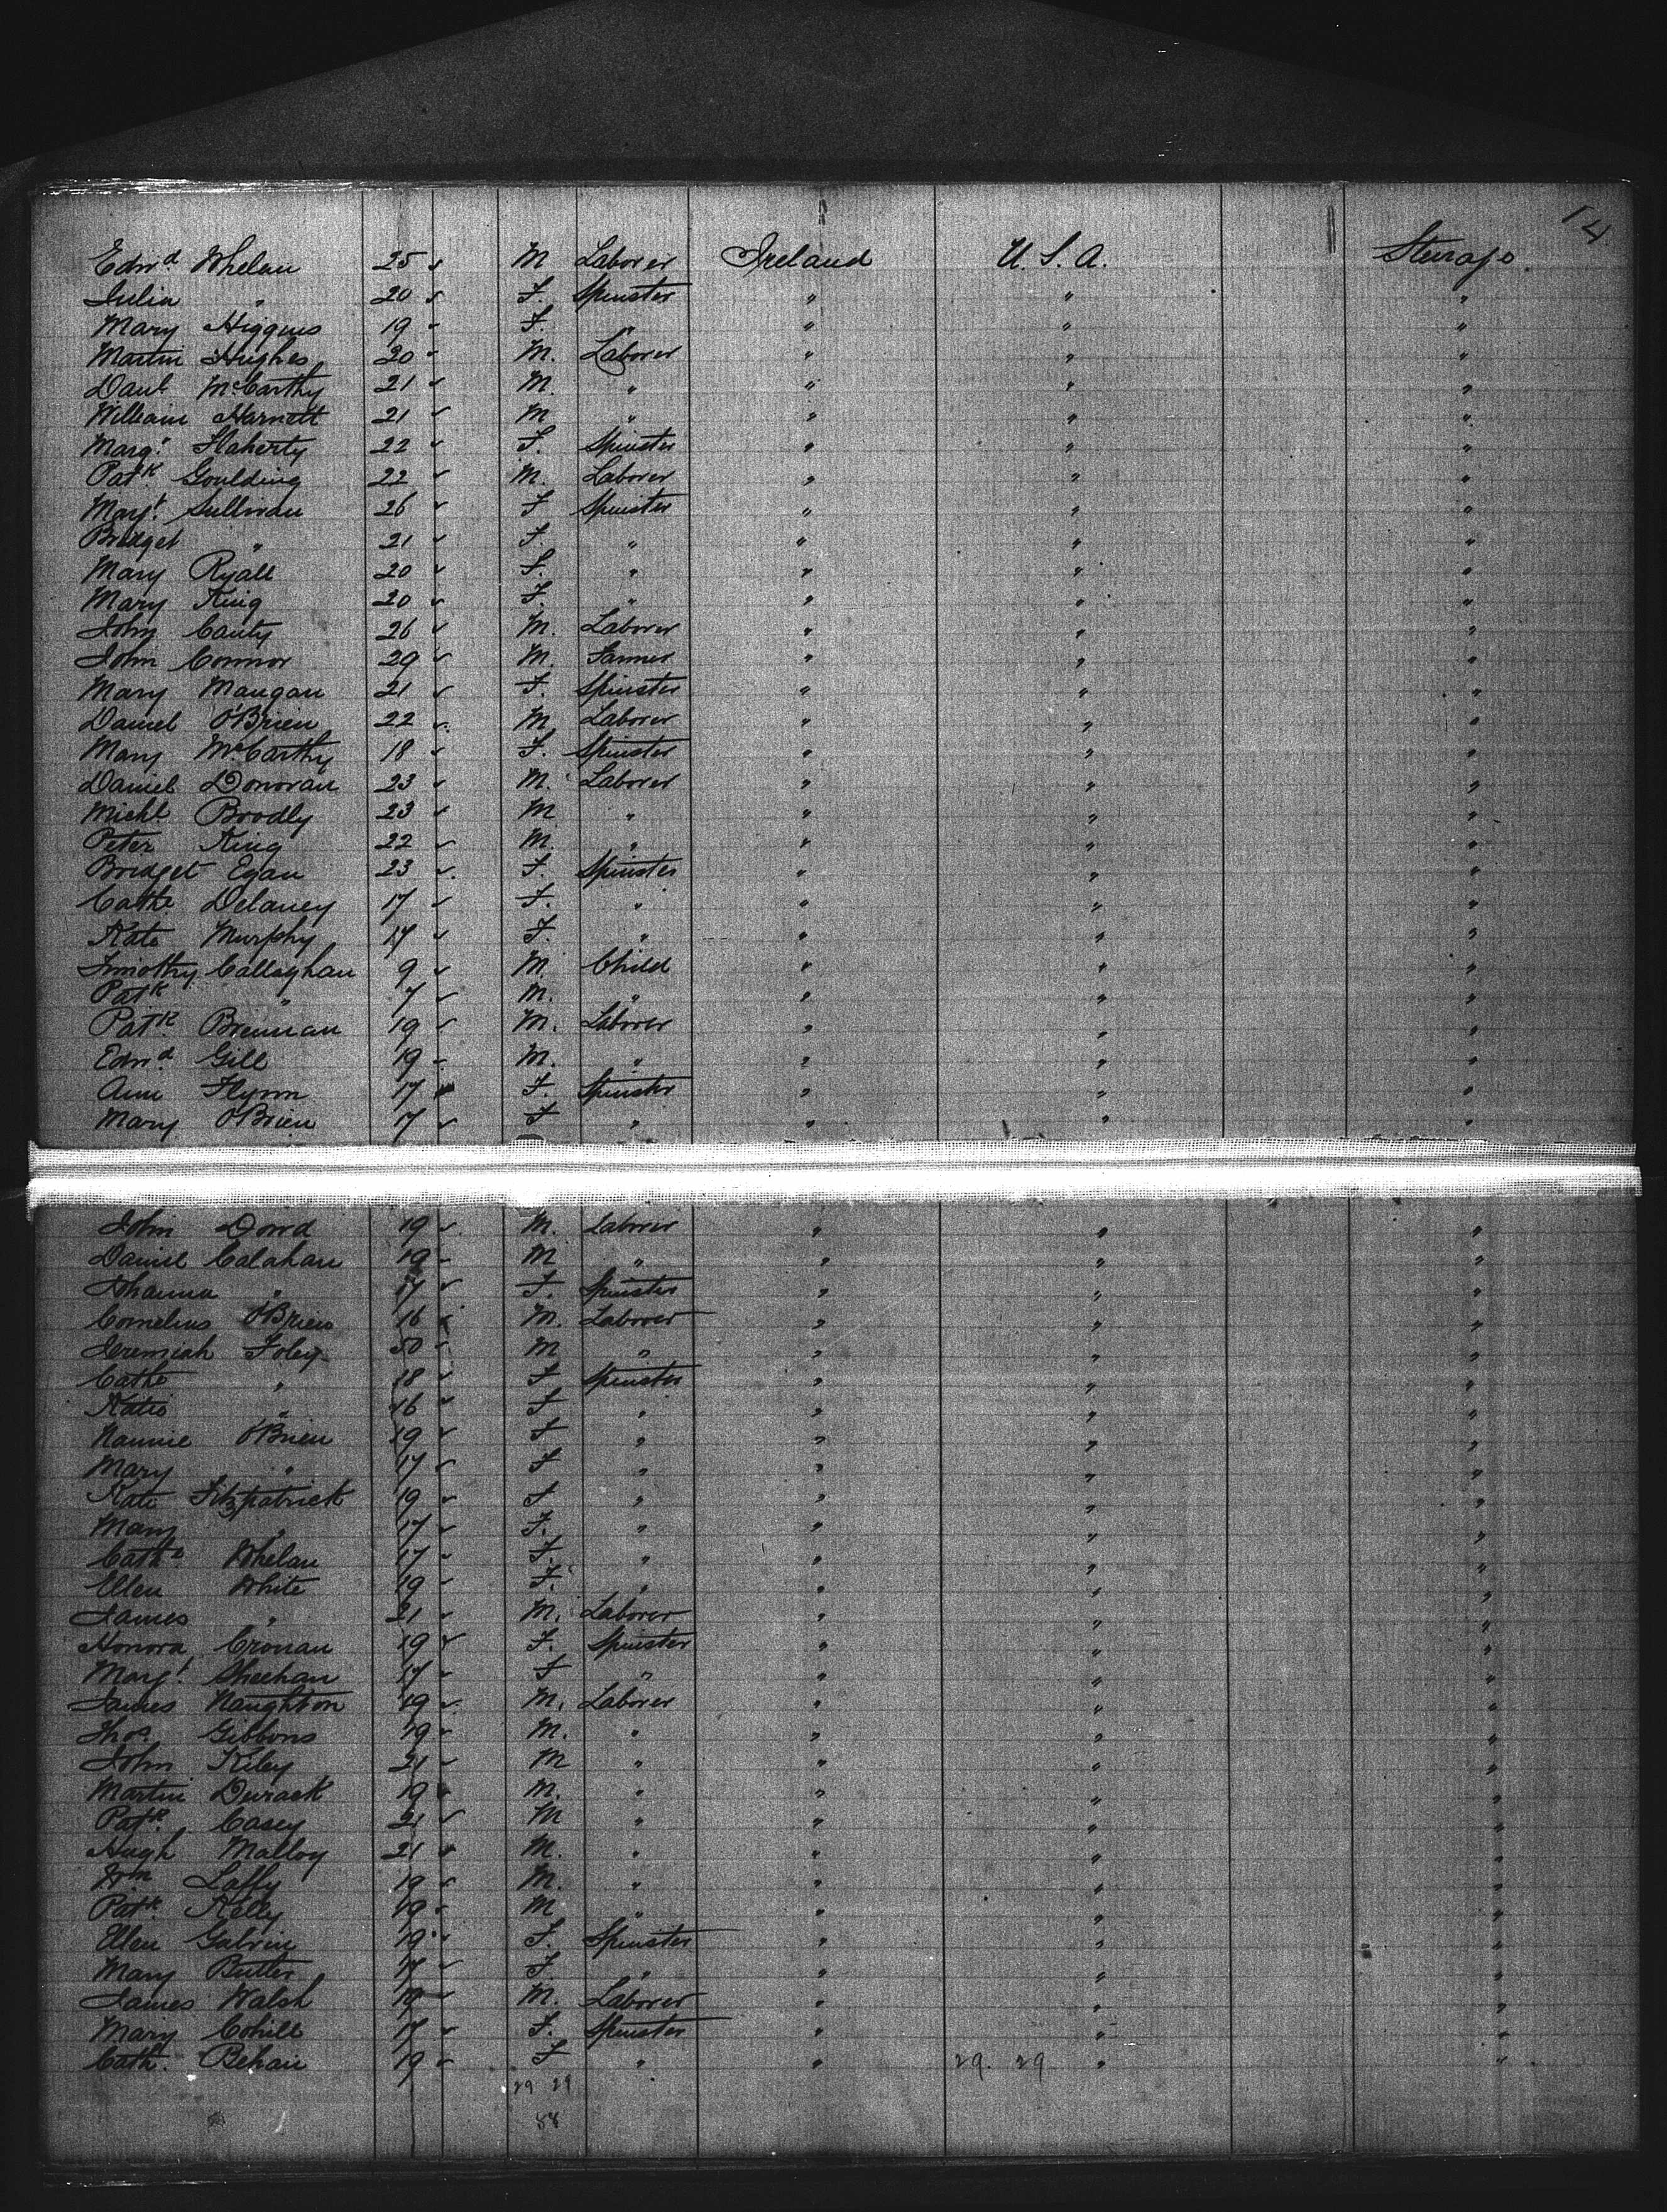 14
Edwd. Whelan 25 M Laborer Ireland U.S.A. Steerage.
Julia " 20 F. Spinster " " "
Mary Higgins 19 F. " " " "
Martin Hughes 20 M. Laborer " " "
Danl McCarthy 21 M. " " " "
William Harnett 21 M " " " "
Margt. Flaherty 22 F. Spinster " " "
Patk Goulding 22 M. Laborer " " "
Margt. Sullivan 26 F Spinster " " "
Bridget " 21 F. " " " "
Mary Ryall 20 F. " " " "
Mary King 20 F. " " " "
John Canty 26 M. Laborer " " "
John Connor 29 M. Farmer " " "
Mary Mangan 21 F. Spinster " " "
Daniel O'Brien 22 M. Laborer " " "
Mary McCarthy 18 F. Spinster " " "
Daniel Donovan 23 M. Laborer " " "
Michl Brodly 23 M " " " "
Peter King 22 M. " " " "
Bridget Egan 23 F. Spinster " " "
Cathe Delaney 17 F. " " " "
Kate Murphy 17 F. " " " "
Timothy Callaghan 9 M. Child " " "
Patk " 7 M. " " " "
Patk. Brennan 19 M. Laborer " " "
Edwd. Gill 19 M. " " " "
Ann Flynn 17 F. Spinster " " "
Mary O'Brien 17 F " " " "
John Dowd 19 M. Laborer " " "
Daniel Calahan 19 M " " " "
Johanna " 17 F. Spinster " " "
Cornelius O'Brien 16 M. Laborer " " "
Jeremiah Foley 50 M " " " "
Cathe " 18 F Spinster " " "
Katie " 16 F " " " "
Nannie O'Brien 19 F " " " "
Mary " 17 F " " " "
Kate Fitzpatrick 19 F " " " "
Mary " 17 F. " " " "
Cathe Whelan 17 F. " " " "
Ellen White 19 F. " " " "
James " 21 M. Laborer " " "
Honora Cronan 19 F. Spinster " " "
Margt. Sheehan 17 F " " " "
James Naughton 19 M. Laborer " " "
Thos. Gibbons 19 M. " " " "
John Kiley 21 M " " " "
Martin Durack 19 M. " " " "
Patk. Casey 21 M " " " "
Hugh Malloy 21 M. " " " "
Wm Laffy 19 M. " " " "
Patk. Kelly 19 M " " " "
Ellen Galvin 19 F. Spinster " " "
Mary Butler 17 F. " " " "
James Walsh 19 M. Laborer " " "
Mary Cohill 17 F. Spinster " " "
Cath. Behan 19 F " " 29. 29 " "
29 29
58